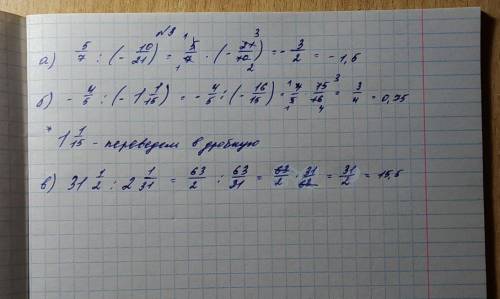 №9
а) 5/7 : (- 10/21) = 5/7 · (- 21/10) = - 3/2 = - 1,5
б) - 4/5 : (- 1 1/15) = - 4/5 : (- 16/15) = 4/5 · 15/16 = 3/4 = 0,75
* 1 1/15 - переведем в дробную
в) 31 1/2 : 2 1/31 = 63/2 : 63/31 = 63/2 · 31/63 = 31/2 = 15,5